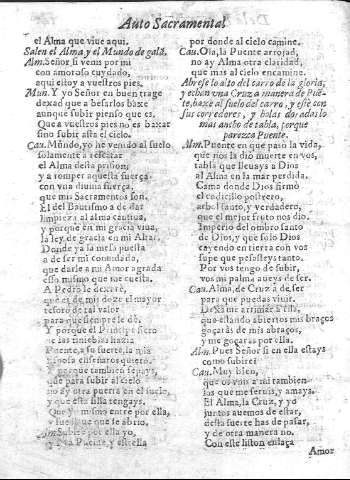 Auto Sacramental
el Alma que viue aqui.
Salen el Alma y el Mundo de galā.
Alm. Señor si venis por mi
con amoroso cuydado,
aqui estoy a vuestros pies.
Mun. Y yo Señor en buen trage
dexad que a besarlos baxe
aunque subir pienso que es.
Que a vuestros pies no es baxar
sino subir asta el cielo.
Cau. Mūdo, yo he venido al suelo
solamente a rescatar
el Alma desta prision,
y a romper aquesta fuerça
con vna diuina fuerça,
que mis Sacramentos son.
El del Bautismo a de dar
limpieza al alma cautiua,
y porque en mi gracia viua,
la ley de gracia en mi Altar.
Donde ya la mesa puesta
a de ser mi conuidado,
que darle a mi Amor agrada
esto mismo que me cuesta.
A Pedro le dexarè,
que es de mis doze el mayor
tesoro de tal valor
para que siempre le dè.
Y porque el Principe fiero
de las tinieblas hazia
Puente, a su suerte, la mia
enseñaros quiero.
Y porque tambien sepays,
que para subir al cielo
no ay otra puerta en el suelo,
y que esta silla tengays.
Que yo mismo entre por ella,
y fue el que la abrio.
Alm. Subire por ella yo,
Puente, y es ella
por donde al cielo camine.
Cau. Ola, la Puente arrojad,
no ay Alma otra claridad,
que mas al cielo encamine.
Abrese lo alto del carro de la gloria,
y echan vna Cruz a manera de Puē-
te, baxe al suelo del carro, y estè con
sus corredores, y bolas doradas lo
mas ancho de tabla, porque
parezca Puente.
Alm. Puente en que passò la vida,
que nos la diò muerte en vos,
tabla que lleuays a Dios
al Alma en la mar perdida.
Cama donde Dios firmò
el codicilo postrero,
arbol santo, y verdadero,
que el mejor fruto nos dio.
Imperio del ombro santo
de Dios, y que solo Dios
cayendo en tierra con vos
supe que pesasteys tanto.
Por vos tengo de subir,
vos mi palma aueys de ser.
Cau. Alma, de Cruz a de ser
para que puedas viuir.
Dexame arrimar a ella,
que estando abiertos mis braços
goçaràs de mis abraços,
y me goçaràs por ella.
Alm. Pues Señor si en ella estays
como subirè?
Cau. Muy bien,
que os vais a mi tambien
las que me seruis, y amays.
El Alma, la Cruz, y yo
juntos auemos de estar,
desta suerte has de passar,
y de otra manera no.
Con este liston enlaça
Amor